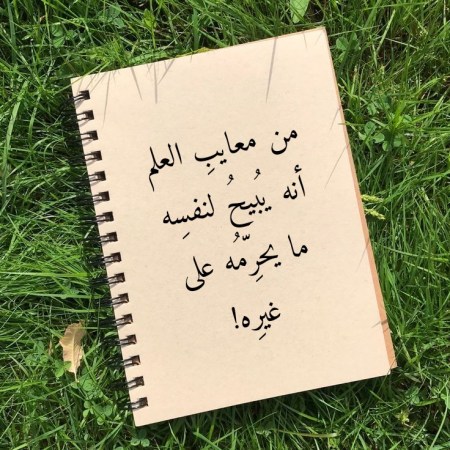 من معايبِ العلم
أنه يبُيحُ لنفسِه
ما يحرِمّهُ على
غيرِه!